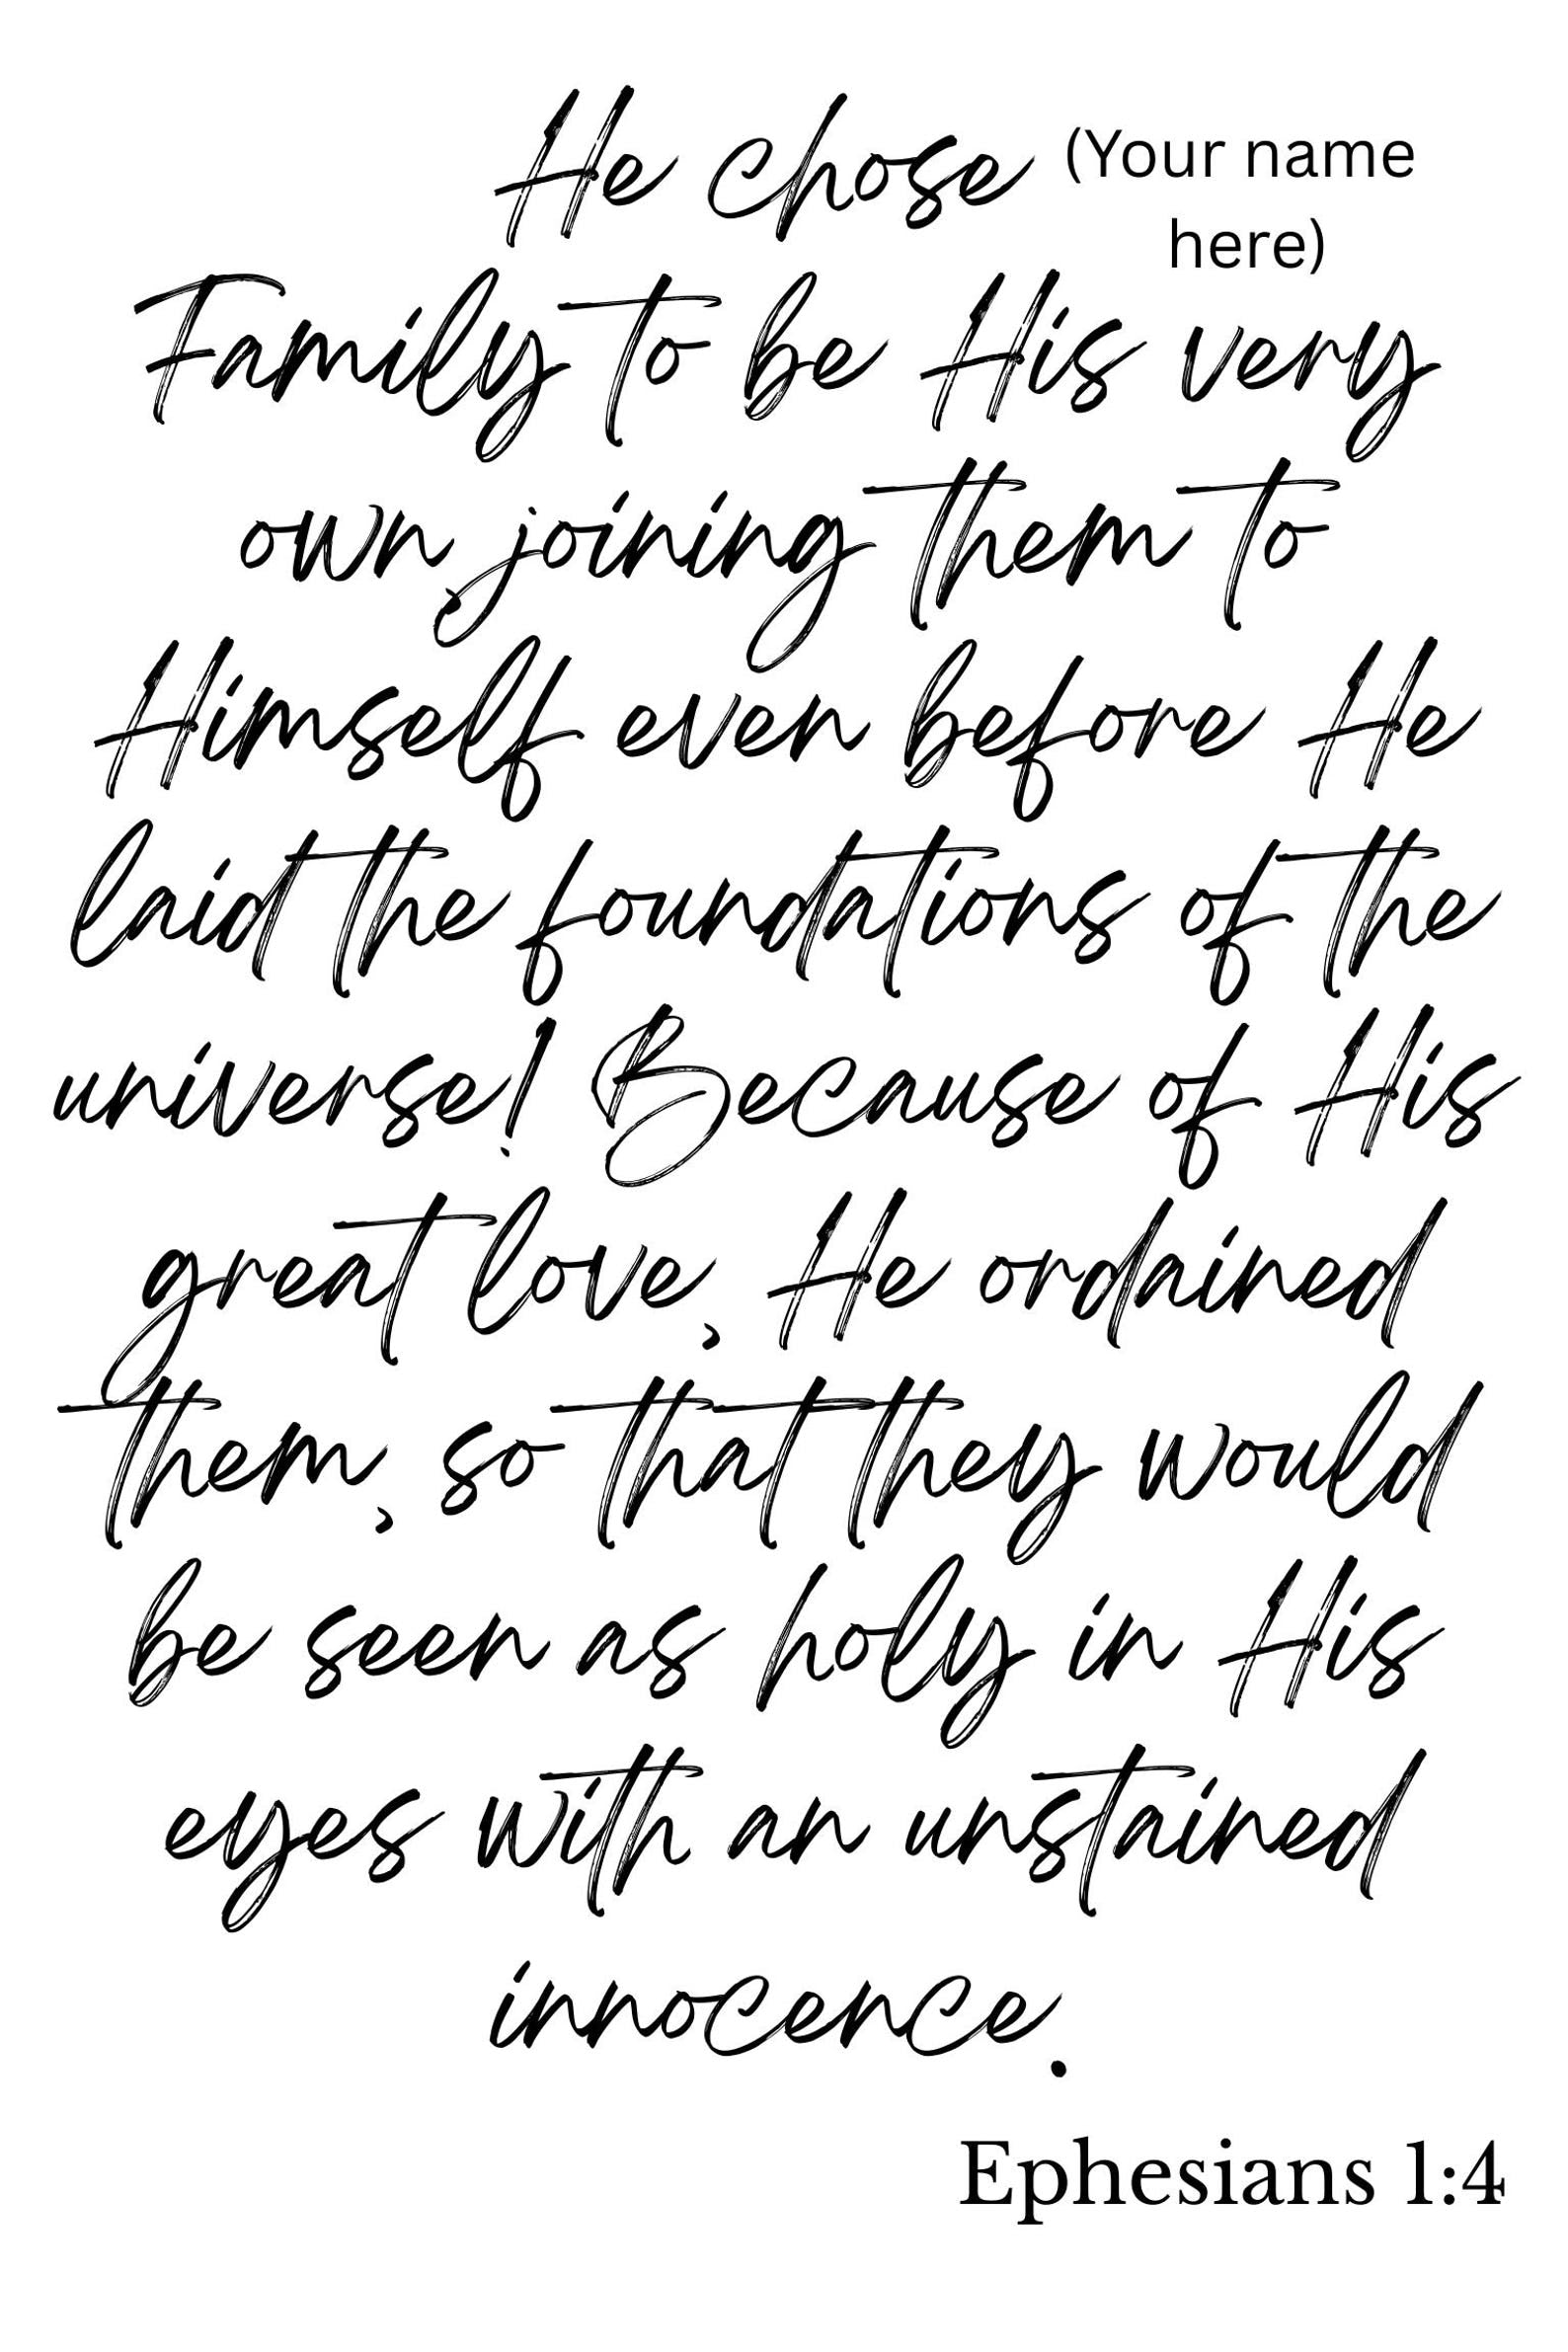 He chose (Your name
here)
Family to be His very
own, joining them to
Himself even before He
laid the foundations of the
universe! Because of His
great love, He ordained
them, so that they would
be seen as holy in His
eyes with an unstained
innocence.
Ephesians 1:4